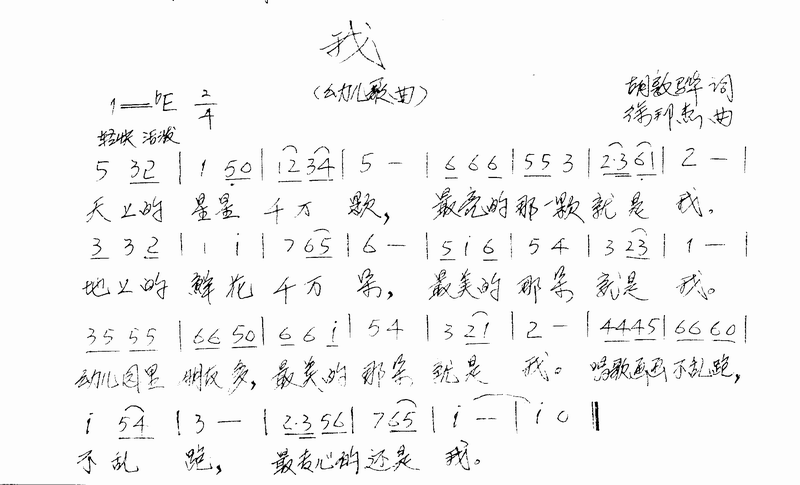 我
(幼儿歌曲)
1=bE 2/4
胡敦骅 词
徐邦杰 曲
轻快 活泼
5 32 | 1 50 | 12 34 | 5 - | 6 6 6 | 5 5 3 | 2·3 61 | 2 - |
天上的 星星 千万 颗, 最亮的那一颗就是 我。
3 3 2 | 1 i | 7 65 | 6 - | 5 i 6 | 5 4 | 3 23 | 1 - |
地上的 鲜花 千万 朵, 最美的 那朵 就是 我。
35 55 | 66 50 | 6 6 i | 5 4 | 3 21 | 2 - | 4445 | 6660 |
幼儿园里 朋友多, 最美的 那朵 就是 我。 唱歌画画不乱跑,
i 54 | 3 - | 2·3 56 | 7 65 | i - | i 0 ‖
不乱 跑, 最专心的还是 我。